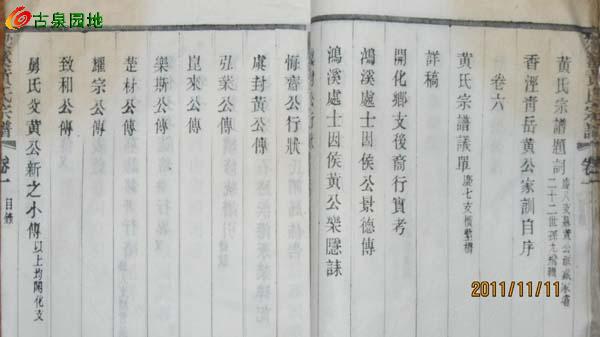 古泉园地
黃氏宗譜題詞
香溼青岳黃公家訓自序
卷六
黃氏宗譜議單
詳稿
開化鄉支後裔行實考
鴻溪處士因侯公景德傳
鴻溪處士因侯黃公樂隱誄
悔齋公行狀
虞封黃公傳
弘業公傳
崑來公傳
樂斯公傳
楚材公傳
耀宗公傳
致和公傳
舅氏文黃公新之小傳 以上均開化支
卷一
目錄
2011/11/11